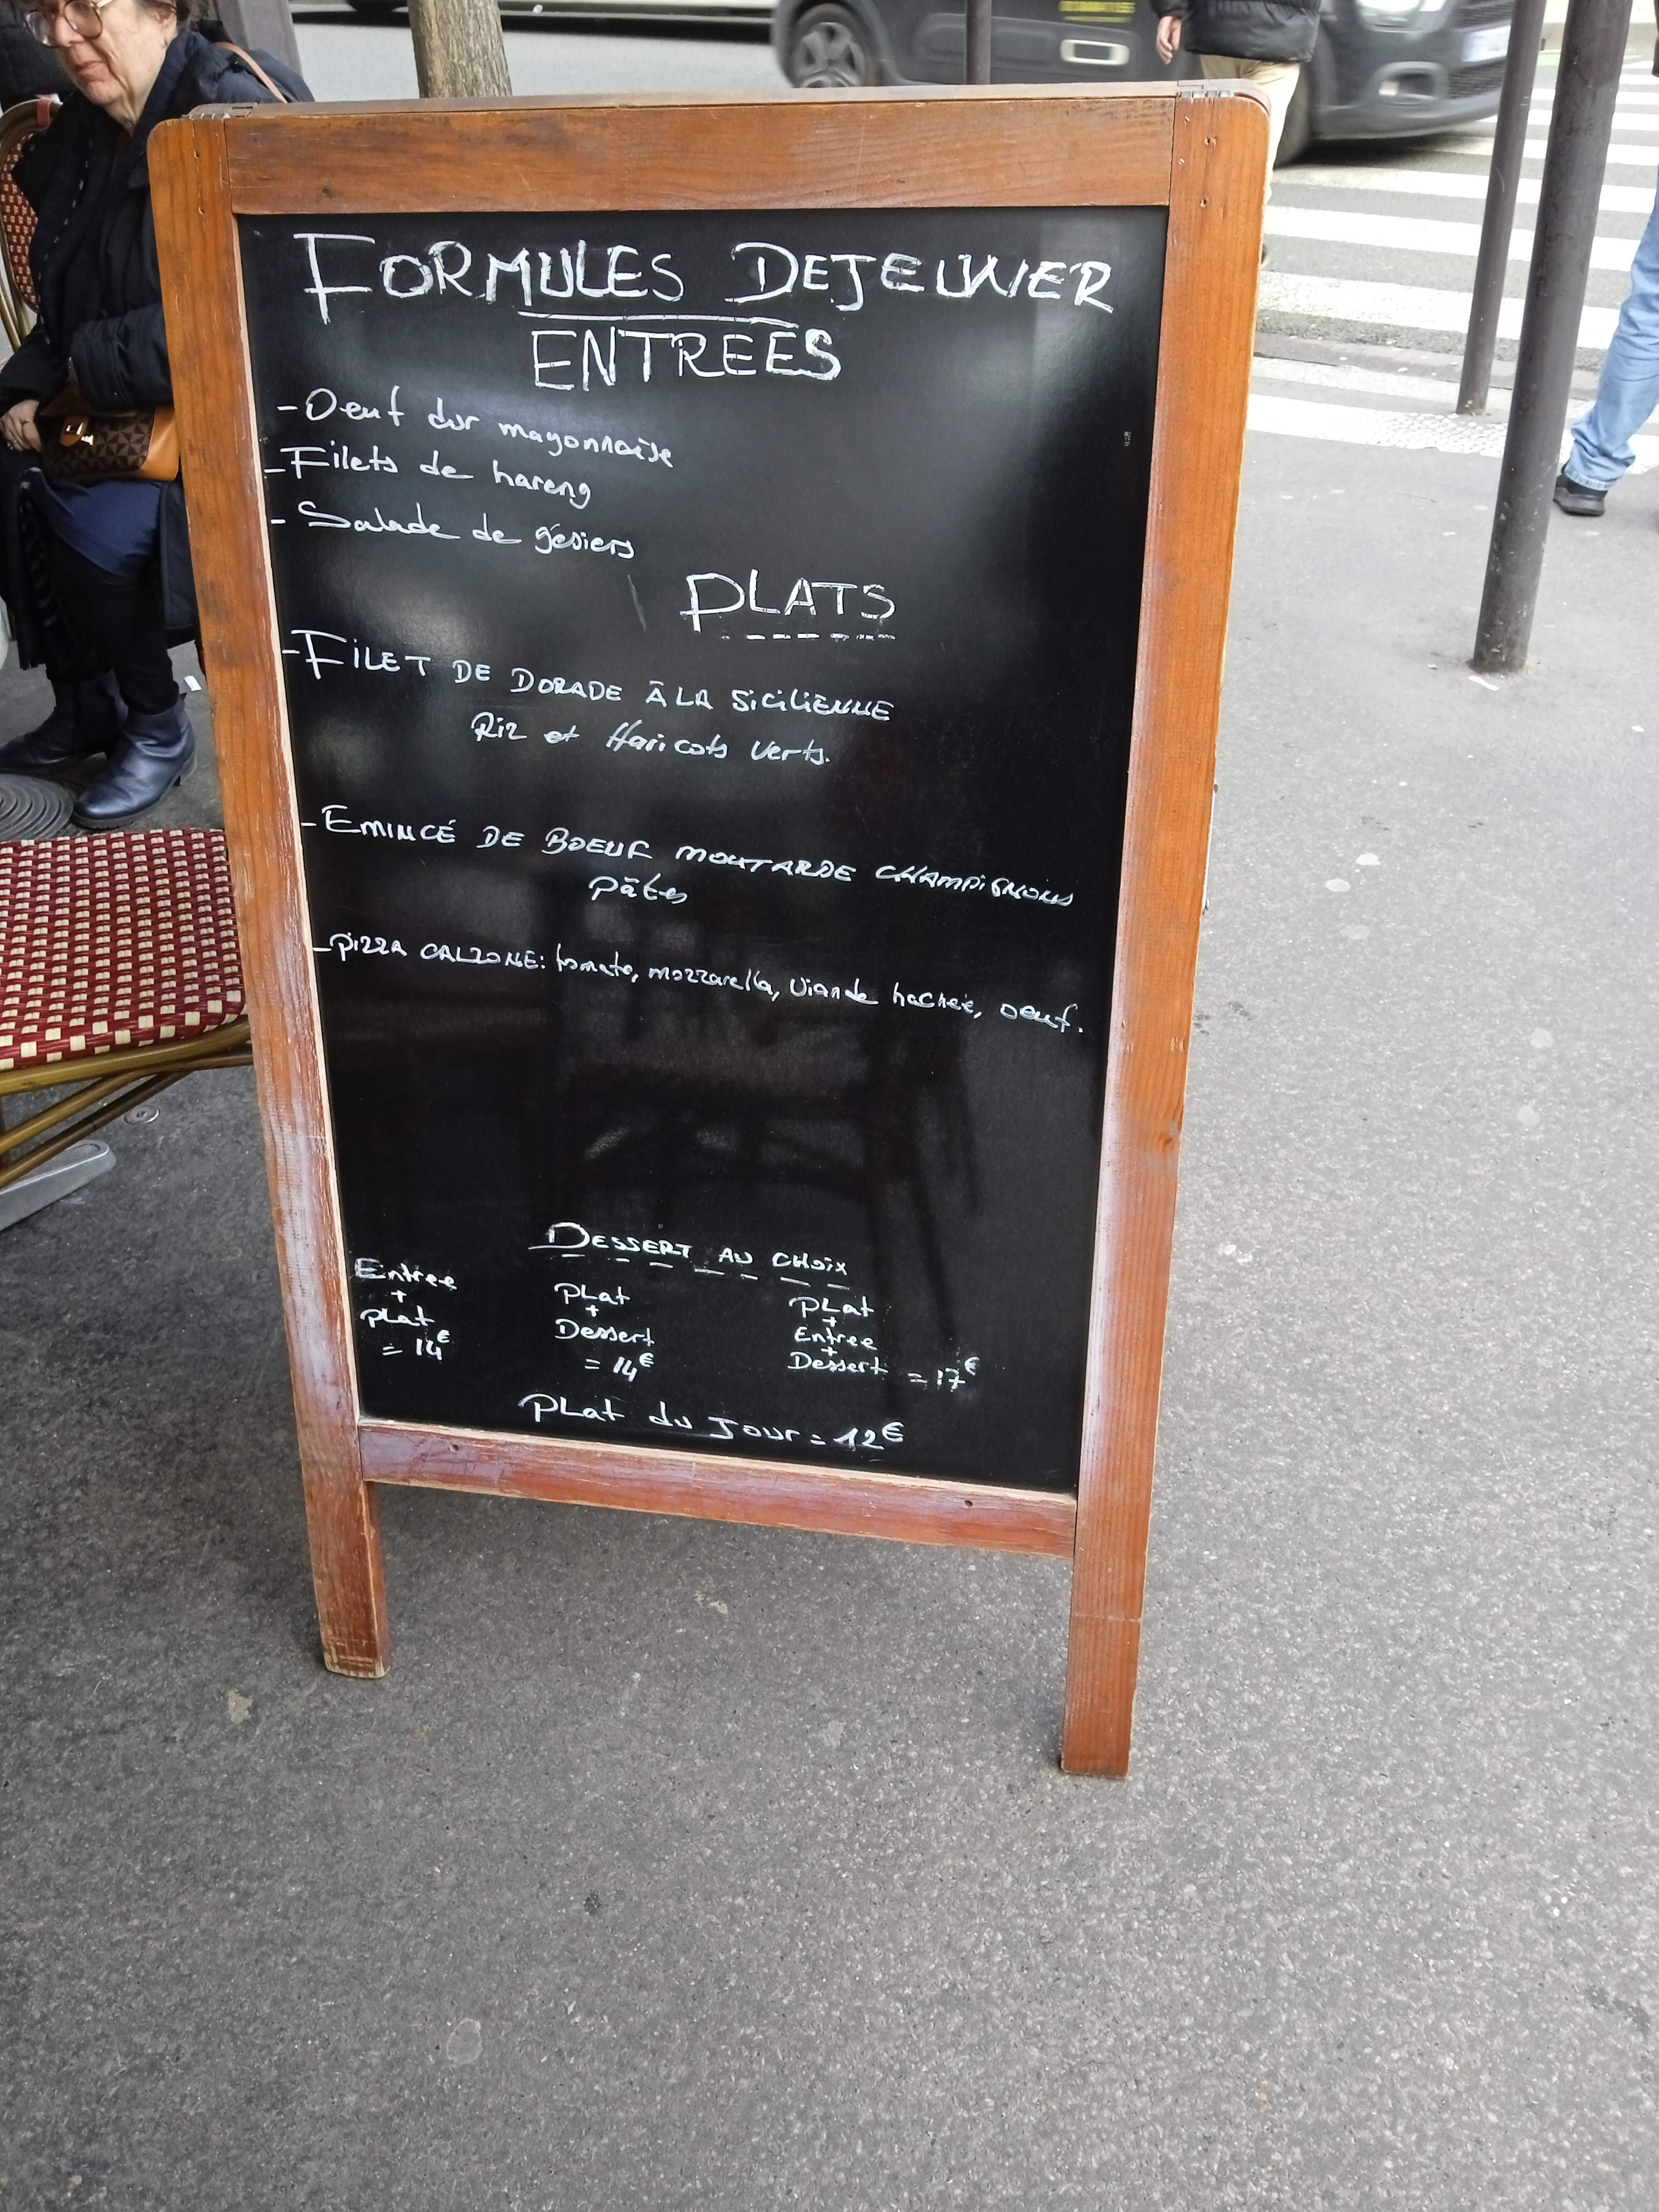 FORMULES DEJEUNER
ENTREES
- Oeuf dur mayonnaise
- Filets de hareng
- Salade de gésiers
PLATS
- FILET DE DORADE À LA SICILIENNE
Riz et Haricots Verts.
- EMINCÉ DE BOEUF MOUTARDE CHAMPIGNONS
Pâtes
- PIZZA CALZONE: tomate, mozzarella, Viande hachée, oeuf.
DESSERT AU CHOIX
Entree
+
Plat
= 14€
PLat
+
Dessert
= 14€
PLat
+
Entree
+
Dessert = 17€
PLat du Jour = 12€